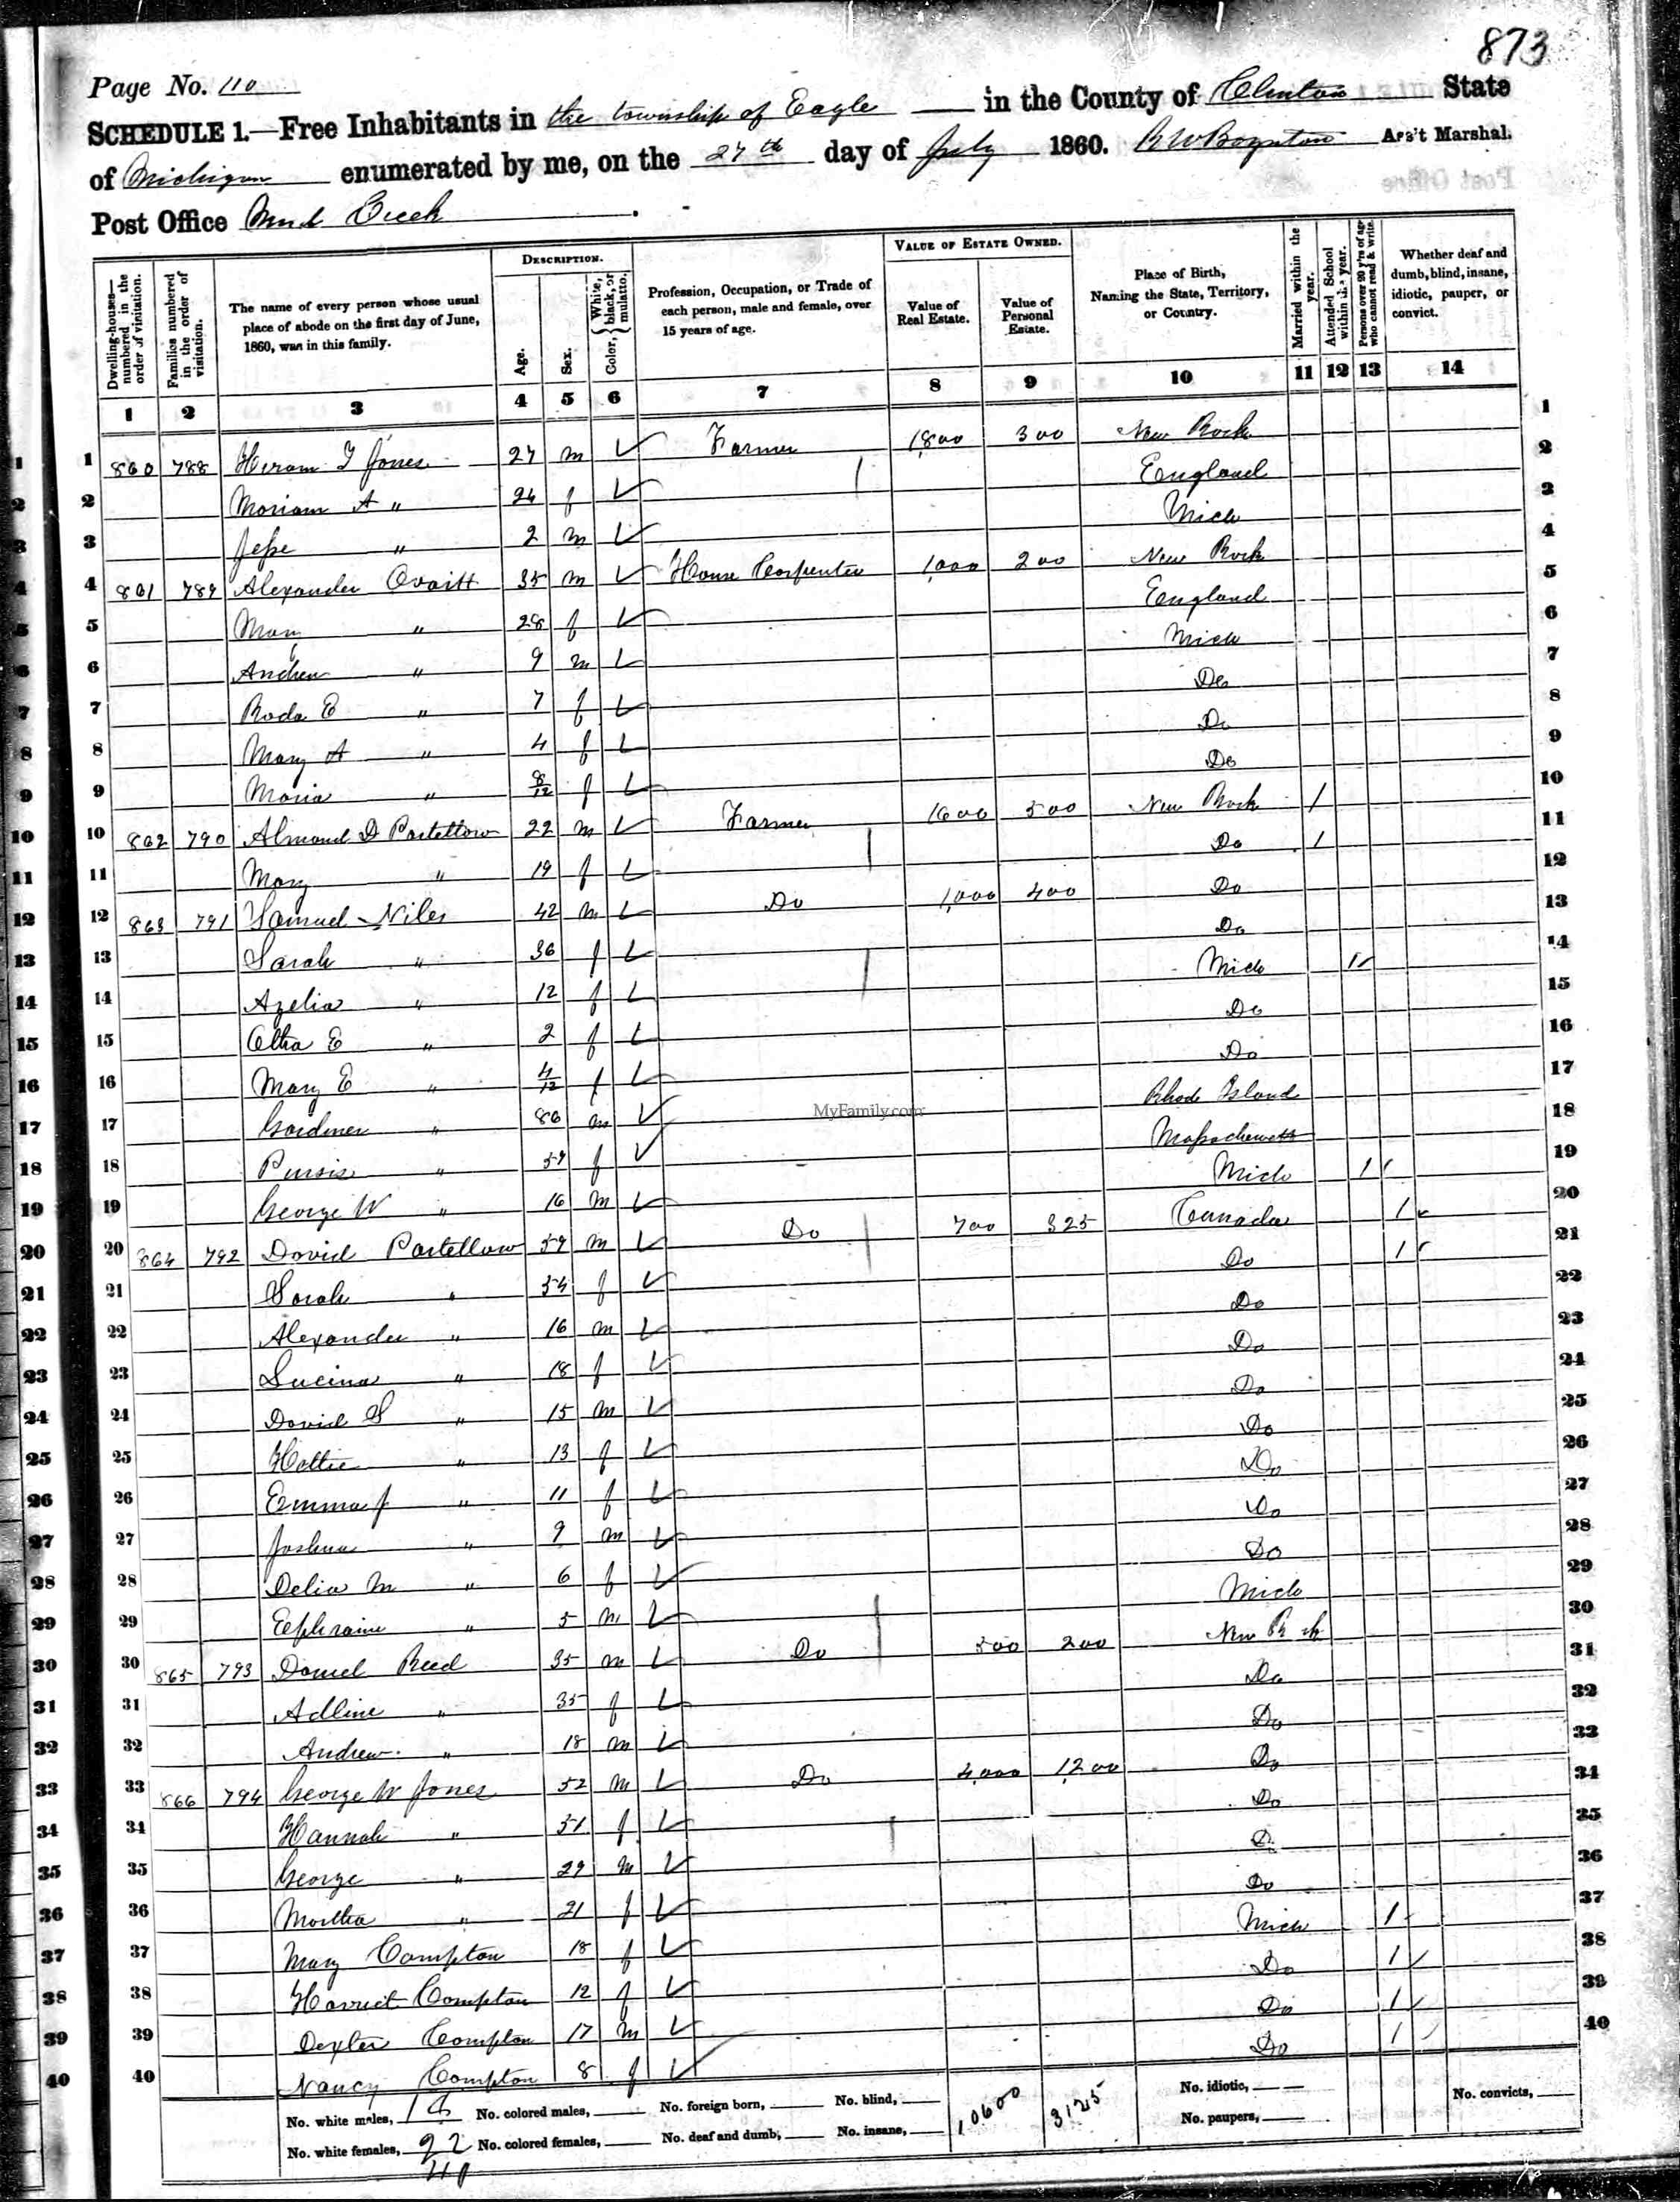 873
Page No. 110
SCHEDULE 1.—Free Inhabitants in the township of Eagle in the County of Clinton State
of Michigan enumerated by me, on the 27th day of July 1860. R W Boynton Ass't Marshal.
Post Office Mud Creek
Dwelling-houses—numbered in the order of visitation.
Families numbered in the order of visitation.
The name of every person whose usual place of abode on the first day of June, 1860, was in this family.
DESCRIPTION.
Age.
Sex.
Color, { White, black, or mulatto.
Profession, Occupation, or Trade of each person, male and female, over 15 years of age.
VALUE OF ESTATE OWNED.
Value of Real Estate.
Value of Personal Estate.
Place of Birth, Naming the State, Territory, or Country.
Married within the year.
Attended School within the year.
Persons over 20 y'rs of age who cannot read & write.
Whether deaf and dumb, blind, insane, idiotic, pauper, or convict.
1 2 3 4 5 6 7 8 9 10 11 12 13 14
1 860 788 Hiram T Jones 27 m Farmer 1,800 300 New York 1
2 Moriam A " 24 f England 2
3 Jesse " 2 m Mich 3
4 861 789 Alexander Ovaitt 35 m House Carpenter 1,000 200 New York 4
5 Mary " 28 f England 5
6 Andrew " 9 m Mich 6
7 Roda E " 7 f Do 7
8 Mary A " 4 f Do 8
9 Maria " 8/12 f Do 9
10 862 790 Almond D Partellow 22 m Farmer 1600 500 New York / 10
11 Mary " 19 f Do / 11
12 863 791 Samuel Niles 42 m Do 1,000 400 Do 12
13 Sarah " 36 f Do 13
14 Azelia " 12 f Mich 1 14
15 Etha E " 2 f Do 15
16 Mary E " 4/12 f Do 16
17 Gardner " 86 m Rhode Island 17
18 " 59 f Massachusetts 18
19 George W " 16 m Mich 1 19
20 864 792 David Partellow 59 m Do 700 325 Canada 1 20
21 Sarah " 54 f Do 1 21
22 Alexander " 16 m Do 22
23 Lucina " 18 f Do 23
24 David S " 15 m Do 24
25 Hattie " 13 f Do 25
26 Emma J " 11 f Do 26
27 Joshua " 9 m Do 27
28 Delia M " 6 f Do 28
29 Ephraim " 5 m Mich 29
30 865 793 Daniel Reed 35 m Do 500 200 New York 30
31 Adline " 35 f Do 31
32 Andrew " 18 m Do 32
33 866 794 George W Jones 52 m Do 4,000 1,200 Do 33
34 Hannah " 51 f Do 34
35 George " 29 m Do 35
36 Martha " 21 f Do 36
37 Mary Compton 18 f Mich 1 37
38 Harriet Compton 12 f Do 1 38
39 Dexter Compton 17 m Do 1 39
40 Nancy Compton 8 f Do 1 40
MyFamily.com
No. white males, 18 No. colored males, No. foreign born, No. blind, 10600 3125 No. idiotic, No. convicts,
No. white females, 22 No. colored females, No. deaf and dumb, No. insane, No. paupers,
40